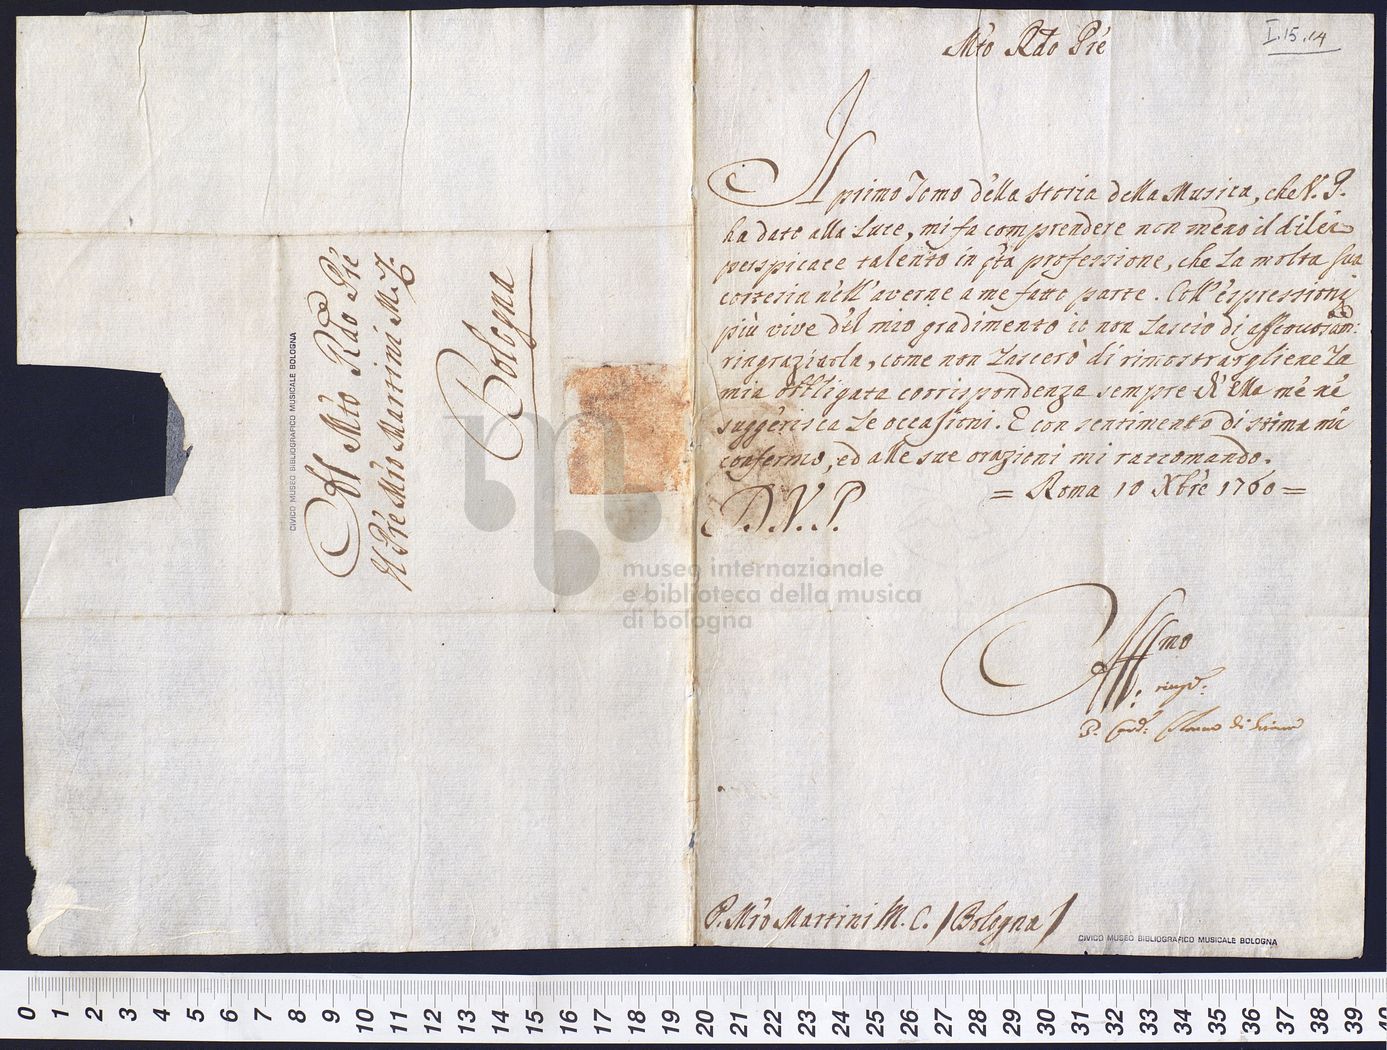 I.15.14
Mto Rdo Prē
Il primo Tomo della Storia della Musica, che V. P.
ha dato alla Luce, mi fa comprendere non meno il di lei
perspicace talento in qta professione, che La molta sua
cortesia nell'averne a me fatto parte. Coll'espressioni
più vive del mio gradimento io non Lascio di affettuosam:
ringraziarla, come non Lascerò di rimostrargliene La
mia obbligata corrispondenza sempre ch'Ella me ne
suggerisca Le occasioni. E con sentimento di stima mi
confermo, ed alle sue orazioni mi raccomando.
= Roma 10 Xbre 1760 =
D. V. P.
Affmo
P. Card: Colonna di
P. Mro Martini M. C. / Bologna /
CIVICO MUSEO BIBLIOGRAFICO MUSICALE BOLOGNA
All Mto Rdo Prē
Il Prē Mro Martini M.
Bologna
CIVICO MUSEO BIBLIOGRAFICO MUSICALE BOLOGNA
museo internazionale
e biblioteca della musica
di bologna
0 1 2 3 4 5 6 7 8 9 10 11 12 13 14 15 16 17 18 19 20 21 22 23 24 25 26 27 28 29 30 31 32 33 34 35 36 37 38 39 40